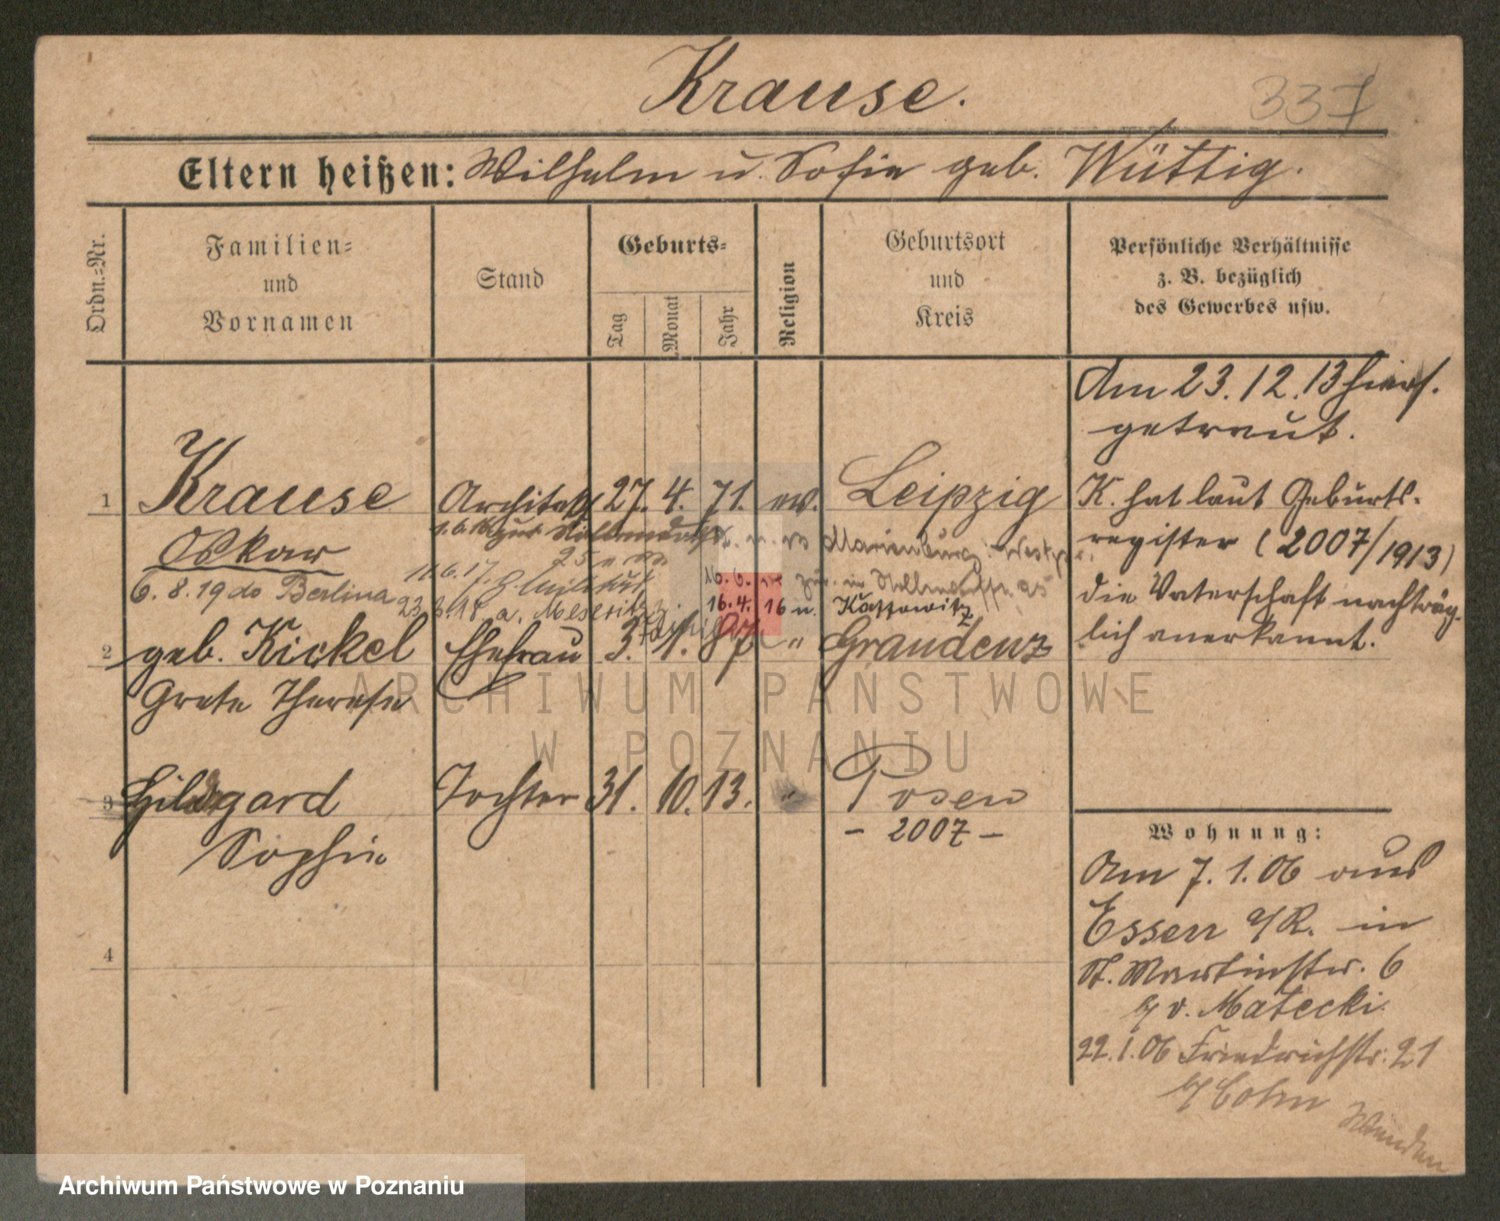 Krause.
337
Eltern heißen: Wilhelm u. Sofie geb. Wüttig.
Ordn.-Nr.
Familien-
und
Vornamen
Stand
Geburts-
Tag
Monat
Jahr
Religion
Geburtsort
und
Kreis
Persönliche Verhältnisse
z. B. bezüglich
des Gewerbes usw.
1
Krause
Oskar
Architekt
27. 4. 71. ev.
Leipzig
Marienburg
6. 8. 19 do Berlin
11.6.17.
23.3.18. a. Meseritz
16. 4. 16 u. Kattowitz
2
geb. Kickel
Grete Therese
Ehefrau
3. 1. 87 "
Graudenz
3
Hildgard
Sophie
Tochter
31. 10. 13. "
Posen
- 2007 -
4
Am 23.12.13 hiers.
getraut.
K. hat laut Geburts-
register (2007/1913)
die Vaterschaft nachträg-
lich anerkannt.
Wohnung:
Am 7.1.06 aus
Essen a/R. in
St. Martinstr. 6
b/ v. Matecki.
22.1.06 Friedrichstr. 21
b/ Cohn
Wenden
ARCHIWUM PAŃSTWOWE
W POZNANIU
Archiwum Państwowe w Poznaniu